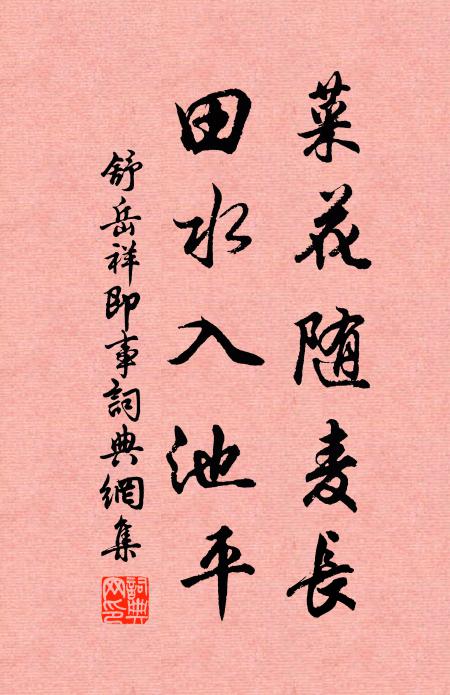 菜花随麦長
田水入池平
舒岳祥即事詞典網集
詞典网印